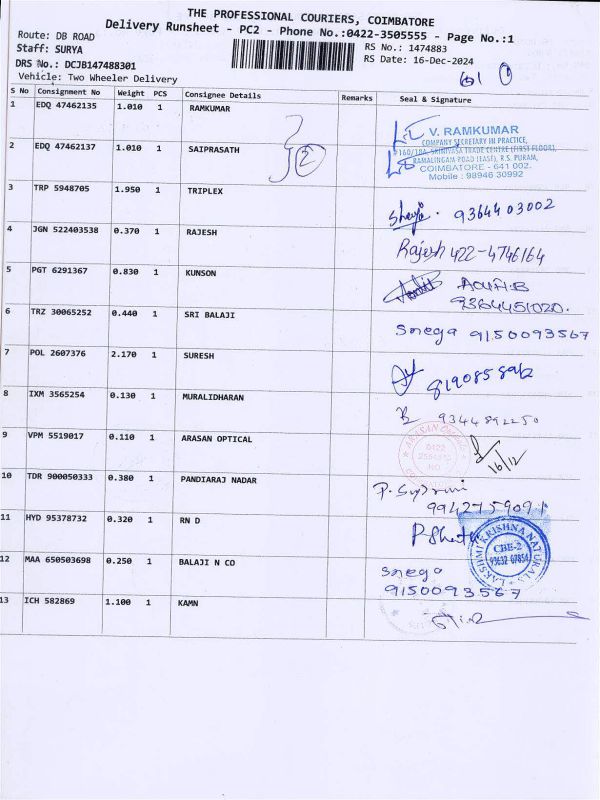 THE PROFESSIONAL COURIERS, COIMBATORE
Delivery Runsheet - PC2 - Phone No.:0422-3505555 - Page No.:1
Route: DB ROAD
RS No.: 1474883
Staff: SURYA
RS Date: 16-Dec-2024
DRS No.: DCJB147488301
Vehicle: Two Wheeler Delivery
S No Consignment No Weight PCS Consignee Details Remarks Seal & Signature
1 EDQ 47462135 1.010 1 RAMKUMAR
V. RAMKUMAR
COMPANY SECRETARY IN PRACTICE,
#160/18A, SRINIVASA TRADE CENTRE (FIRST FLOOR),
RAMALINGAM ROAD (EAST), R.S. PURAM,
COIMBATORE - 641 002.
Mobile : 98946 30992
2 EDQ 47462137 1.010 1 SAIPRASATH
2
3 TRP 5948705 1.950 1 TRIPLEX
9364403002
4 JGN 522403538 0.370 1 RAJESH
Rajesh 422-4746164
5 PGT 6291367 0.830 1 KUNSON
9364451020.
6 TRZ 30065252 0.440 1 SRI BALAJI
Snega 9150093567
7 POL 2607376 2.170 1 SURESH
8 IXM 3565254 0.130 1 MURALIDHARAN
9344892250
9 VPM 5519017 0.110 1 ARASAN OPTICAL
ARASAN
0422
16/12
10 TDR 900050333 0.380 1 PANDIARAJ NADAR
9942759091
11 HYD 95378732 0.320 1 RN D
LAKSHMI KRISHNA NATURALS
CBE-2
93632 07854
12 MAA 650503698 0.250 1 BALAJI N CO
Snega
9150093567
13 ICH 582869 1.100 1 KAMN